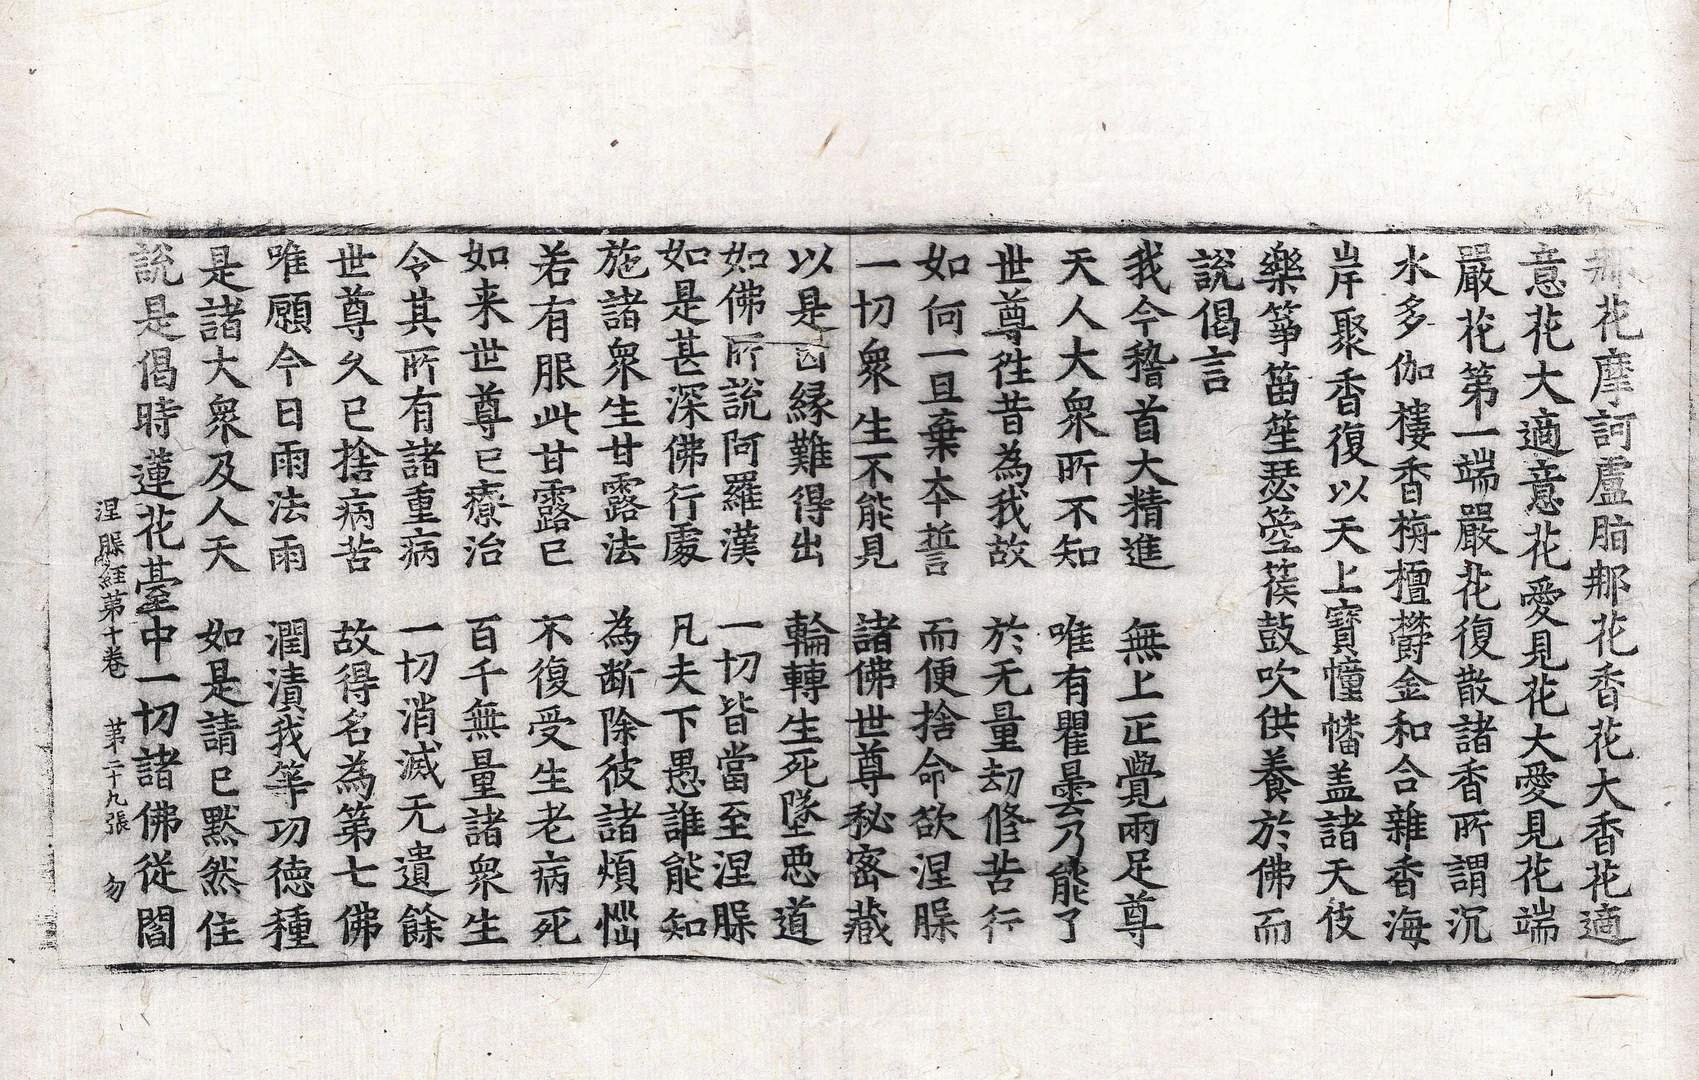 那花摩訶盧脂那花香花大香花適
意花大適意花愛見花大愛見花端
嚴花第一端嚴花復散諸香所謂沉
水多伽樓香栴檀欝金和合雜香海
岸聚香復以天上寶幢幡盖諸天伎
樂箏笛笙瑟箜篌鼓吹供養於佛而
說偈言
我今稽首大精進 無上正覺兩足尊
天人大衆所不知 唯有瞿曇乃能了
世尊徃昔為我故 於无量劫修苦行
如何一旦棄本誓 而便捨命欲涅膎
一切衆生不能見 諸佛世尊秘密藏
以是因縁難得出 輪轉生死墜惡道
如佛所說阿羅漢 一切皆當至涅膎
如是甚深佛行處 凡夫下愚誰能知
施諸衆生甘露法 為断除彼諸煩惱
若有服此甘露已 不復受生老病死
如来世尊已療治 百千無量諸衆生
令其所有諸重病 一切消滅无遺餘
世尊久已捨病苦 故得名為第七佛
唯願今日雨法雨 潤漬我等功德種
是諸大衆及人天 如是請已黙然住
說是偈時蓮花臺中一切諸佛従閻
涅膎經第十卷 第二十九張 勿